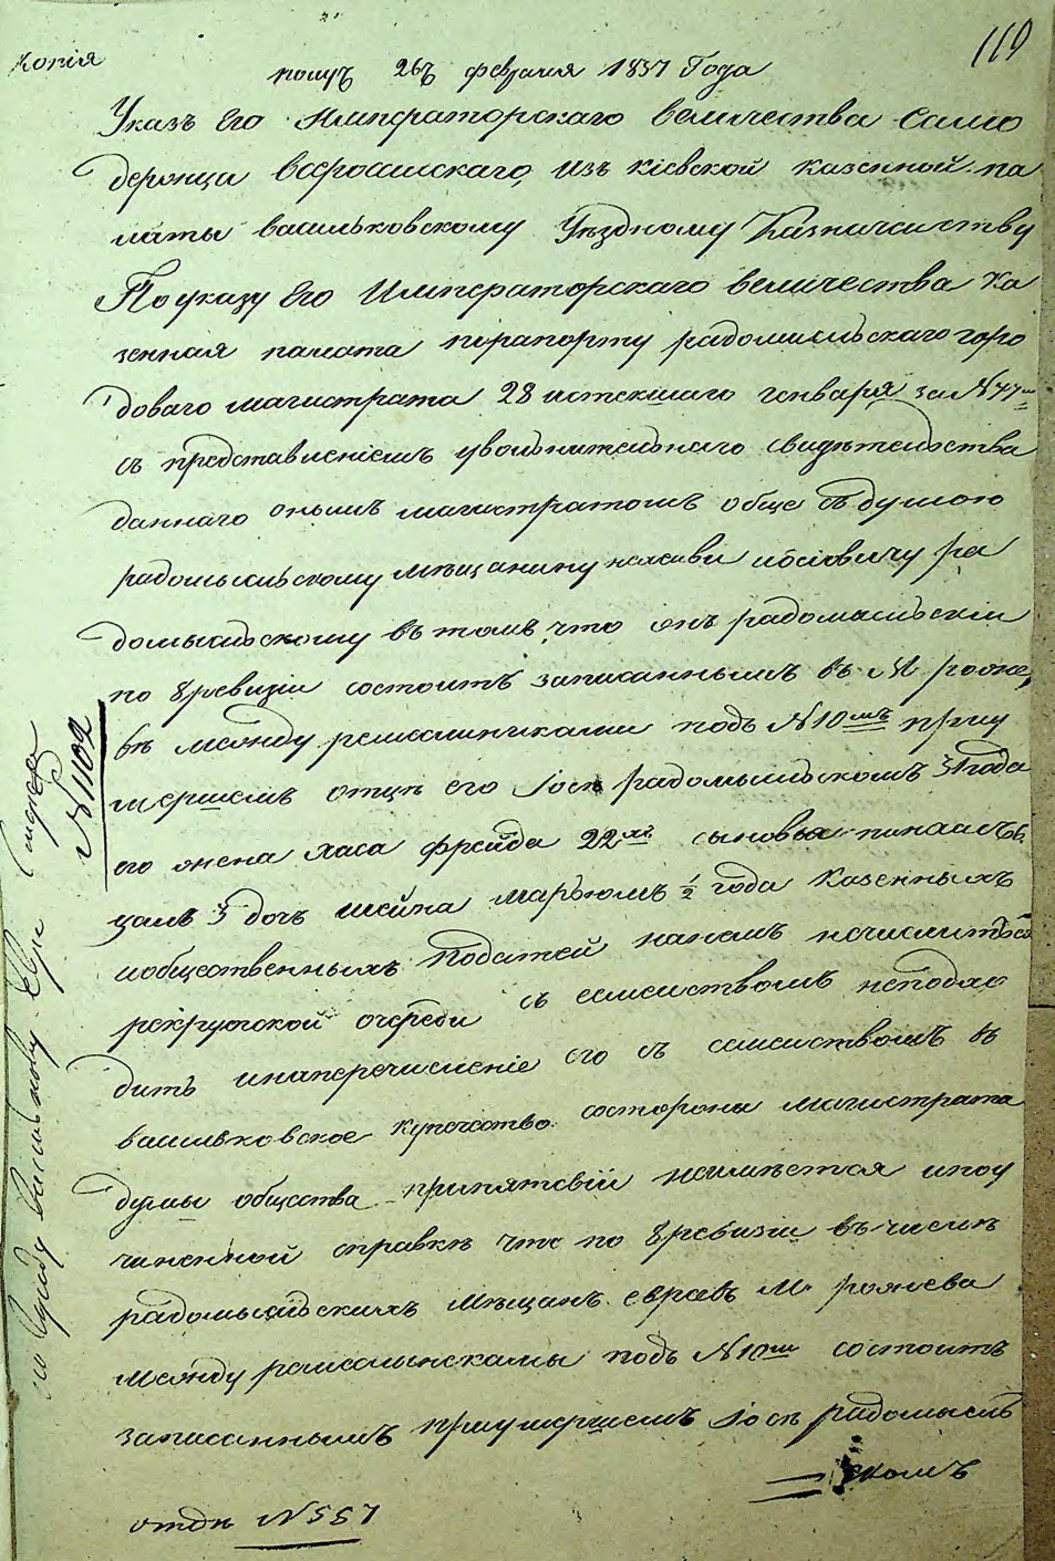 119
Копія
получ 26ъ февраля 1837 Года
Указъ Его Императорскаго величества Само
держца всеросийскаго, изъ кіевской казенной па
латы васильковскому Уѣздному Казначейству
По указу Его Императорскаго величества Ка
зенная палата порапорту радомысльскаго горо
доваго магистрата 28 истекшаго генваря за N 77
съ представленіемъ увольнительнаго свидѣтельства
даннаго онымъ магистратомъ обще съ думою
радомысльскому мѣщанину иосіовичу ра
домысльскому въ томъ, что онъ радомысльскій
по 8 ревизіи состоитъ записаннымъ въ М рожне,
въ между ремесленниками подъ N 10мъ приу
мершемъ отцѣ его Іосѣ радомысльскомъ 31 года
его жена хаса фрейда 22хъ сыновья
цалъ 3 дочь шейна марьюмъ ½ года Казенныхъ
иобщественныхъ податей нанемъ нечислится
рекрутской очереди съ семействомъ неподхо
дитъ инаперечисленіе его съ семействомъ въ
васильковское купечество состороны магистрата
думы общества припятсвій неимѣется ипоу
чиненной справкѣ что по 8 ревизіи въ числѣ
радомысльскихъ мѣщанъ евреевъ М. рожева
между ремеслынскамы подъ N 10мъ состоитъ
записаннымъ приумершемъ Іосѣ радомысль
скомъ
отдѣ N 557
N 1102